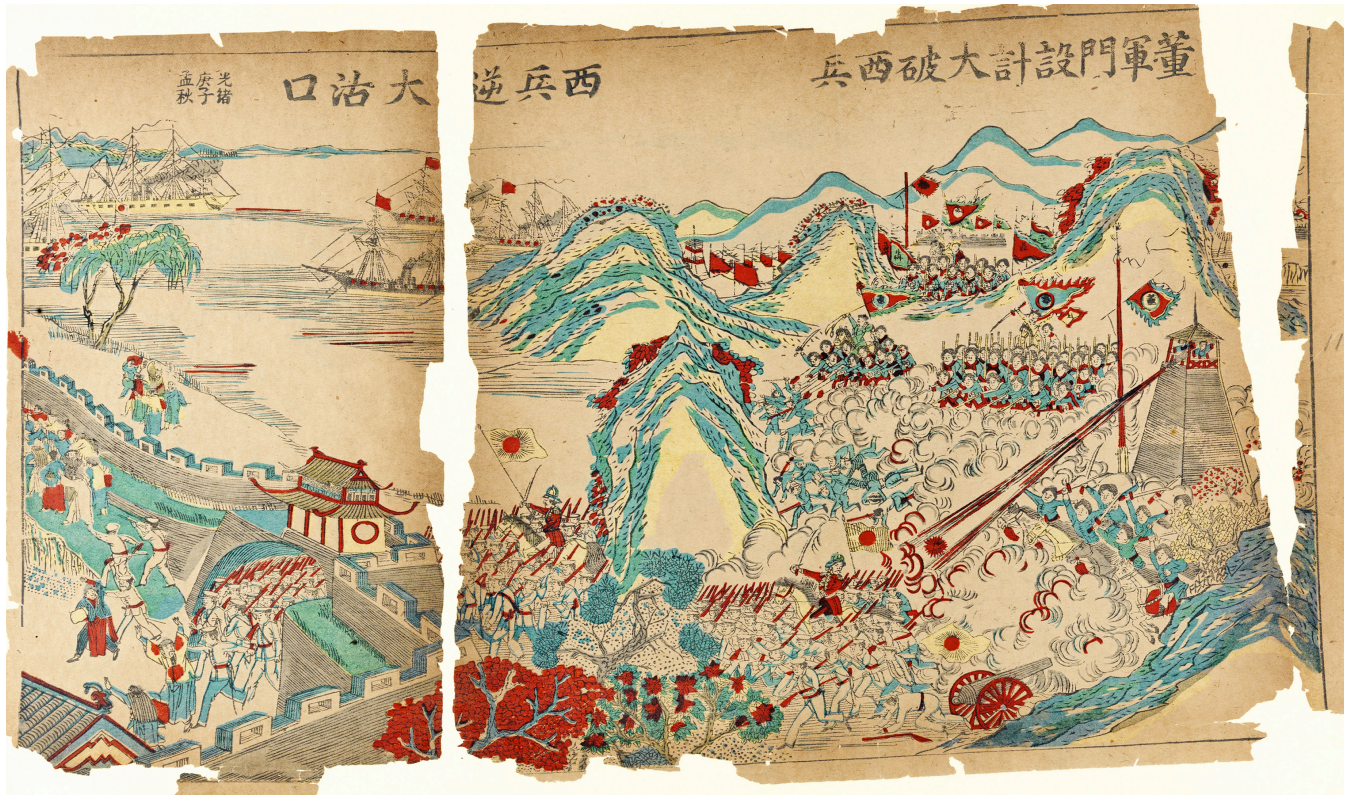 董軍門設計大破西兵
西兵逆大沽口
光緒
庚子
孟秋